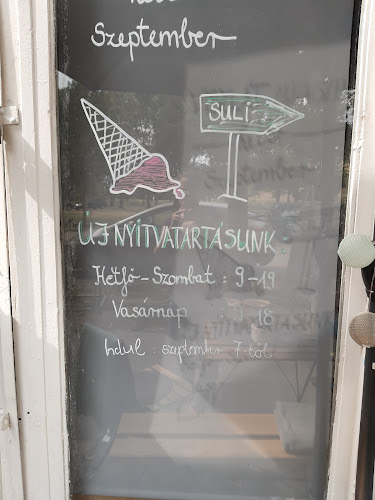 Szeptember
SULI
ÚJ NYITVATARTÁSUNK:
Hétfő - Szombat : 9-19
Vasárnap : 9-18
Indul : szeptember 7-től